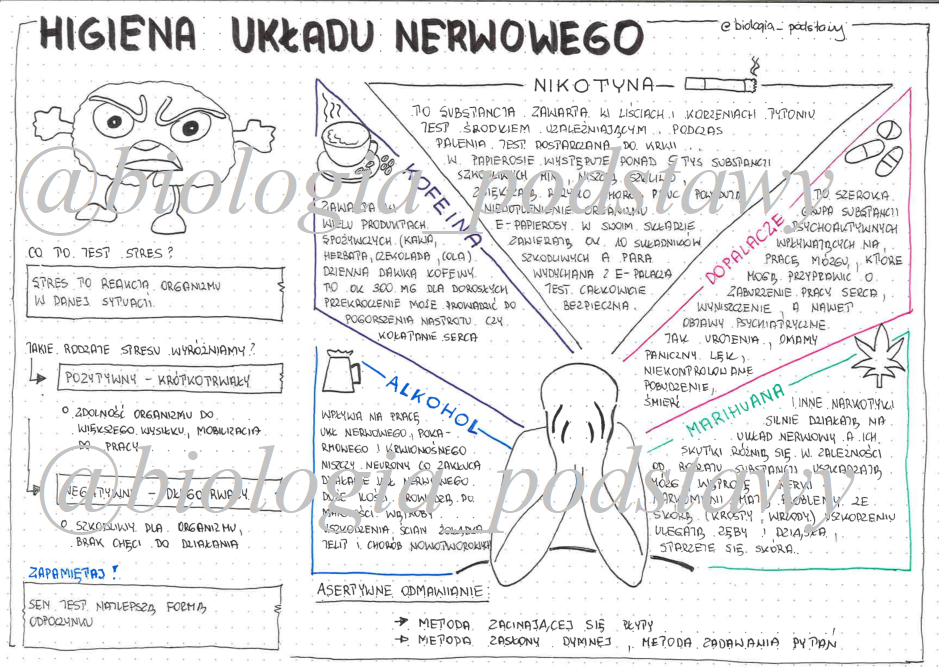 HIGIENA UKŁADU NERWOWEGO
@biologia_podstawy
CO TO JEST STRES?
STRES TO REAKCJA ORGANIZMU
W DANEJ SYTUACJI
JAKIE RODZAJE STRESU WYRÓŻNIAMY?
POZYTYWNY - KRÓTKOTRWAŁY
ZDOLNOŚĆ ORGANIZMU DO
WIĘKSZEGO WYSIŁKU, MOBILIZACJA
DO PRACY
NEGATYWNY - DŁUGOTRWAŁY
SZKODLIWY DLA ORGANIZMU,
BRAK CHĘCI DO DZIAŁANIA
ZAPAMIĘTAJ!
SEN JEST NAJLEPSZĄ FORMĄ
ODPOCZYNKU
KOFEINA
ZAWARTA W
WIELU PRODUKTACH
SPOŻYWCZYCH (KAWA,
HERBATA, CZEKOLADA, COLA).
DZIENNA DAWKA KOFEINY
TO OK. 300 MG DLA DOROSŁYCH
PRZEKROCZENIE MOŻE PROWADZIĆ DO
POGORSZENIA NASTROJU CZY
KOŁATANIE SERCA
NIKOTYNA
TO SUBSTANCJA ZAWARTA W LIŚCIACH I KORZENIACH TYTONIU
JEST ŚRODKIEM UZALEŻNIAJĄCYM. PODCZAS
PALENIA JEST DOSTARCZANA DO KRWI.
W PAPIEROSIE WYSTĘPUJE PONAD 5 TYS SUBSTANCJI
SZKODLIWYCH MIN, NISZCZĄ
ZWIĘKSZAJĄ RYZYKO CHORÓB PŁUC POWODUJĄ
NIEDOTLENIENIE ORGANIZMU.
E-PAPIEROSY W SWOIM SKŁADZIE
ZAWIERAJĄ OK. 10 SKŁADNIKÓW
SZKODLIWYCH A PARA
WYDYCHANA Z E-PALACZA
JEST CAŁKOWICIE
BEZPIECZNA.
DOPALACZE
TO SZEROKA
GRUPA SUBSTANCJI
PSYCHOAKTYWNYCH
WPŁYWAJĄCYCH NA
PRACĘ MÓZGU, KTÓRE
MOGĄ PRZYPRAWIĆ O
ZABURZENIE PRACY SERCA,
WYNISZCZENIE, A NAWET
OBJAWY PSYCHIATRYCZNE.
JAK UROJENIA, OMAMY
PANICZNY LĘK,
NIEKONTROLOWANE
POBUDZENIE,
ŚMIERĆ
ALKOHOL
WPŁYWA NA PRACĘ
UKŁ NERWOWEGO, POKA-
RMOWEGO I KRWIONOŚNEGO
NISZCZY NEURONY CO ZAKŁÓCA
DZIAŁANIE UKŁ NERWOWEGO.
DUŻE ILOŚCI PROWADZĄ DO
MARSKOŚCI WĄTROBY
USZKODZENIA ŚCIAN ŻOŁĄDKA
JELIT I CHORÓB NOWOTWOROWYCH
MARIHUANA
I INNE NARKOTYKI
SILNIE DZIAŁAJĄ NA
UKŁAD NERWOWY A ICH
SKUTKI RÓŻNIĄ SIĘ W ZALEŻNOŚCI
OD RODZAJU SUBSTANCJI USZKADZAJĄ
MÓZG WĄTROBĘ I NERKI
NARKOMANI MAJĄ PROBLEMY ZE
SKÓRĄ (KROSTY, WRZODY) USZKODZENIU
ULEGAJĄ ZĘBY I DZIĄSŁA,
STARZEJE SIĘ SKÓRA..
ASERTYWNE ODMAWIANIE:
METODA ZACINAJĄCEJ SIĘ PŁYTY
METODA ZASŁONY DYMNEJ, METODA ZADAWANIA PYTAŃ
@biologia_podstawy
@biologia_podstawy